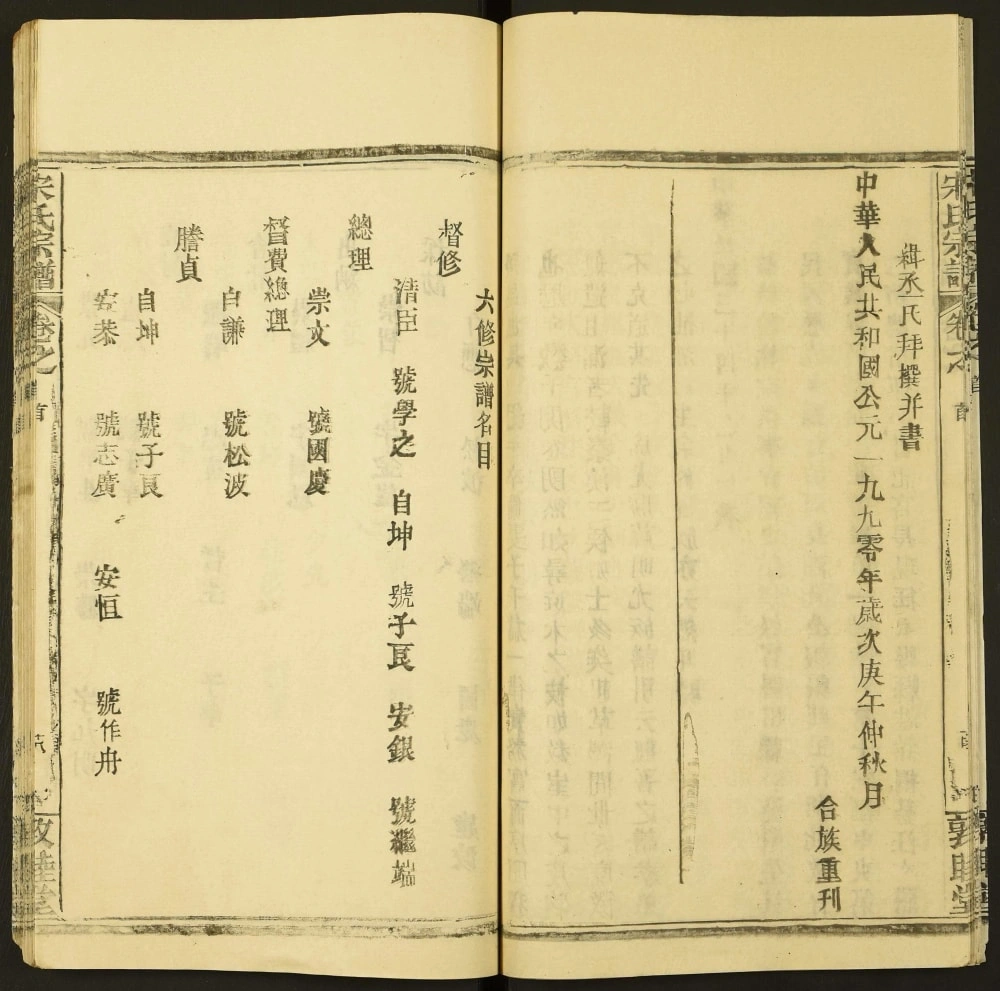 宋氏宗譜
卷之
首
輯丞氏拜撰并書
中華人民共和國公元一九九零年歲次庚午仲秋月
合族重刊
六修宗譜名目
督修
清臣 號學之 自坤 號子良 安銀 號繼端
總理
崇文 號國慶
督費總理
自謙 號松波
謄貞
自坤 號子良
安恭 號志廣 安恒 號作舟
宋氏宗譜
卷之
首
敦睦堂